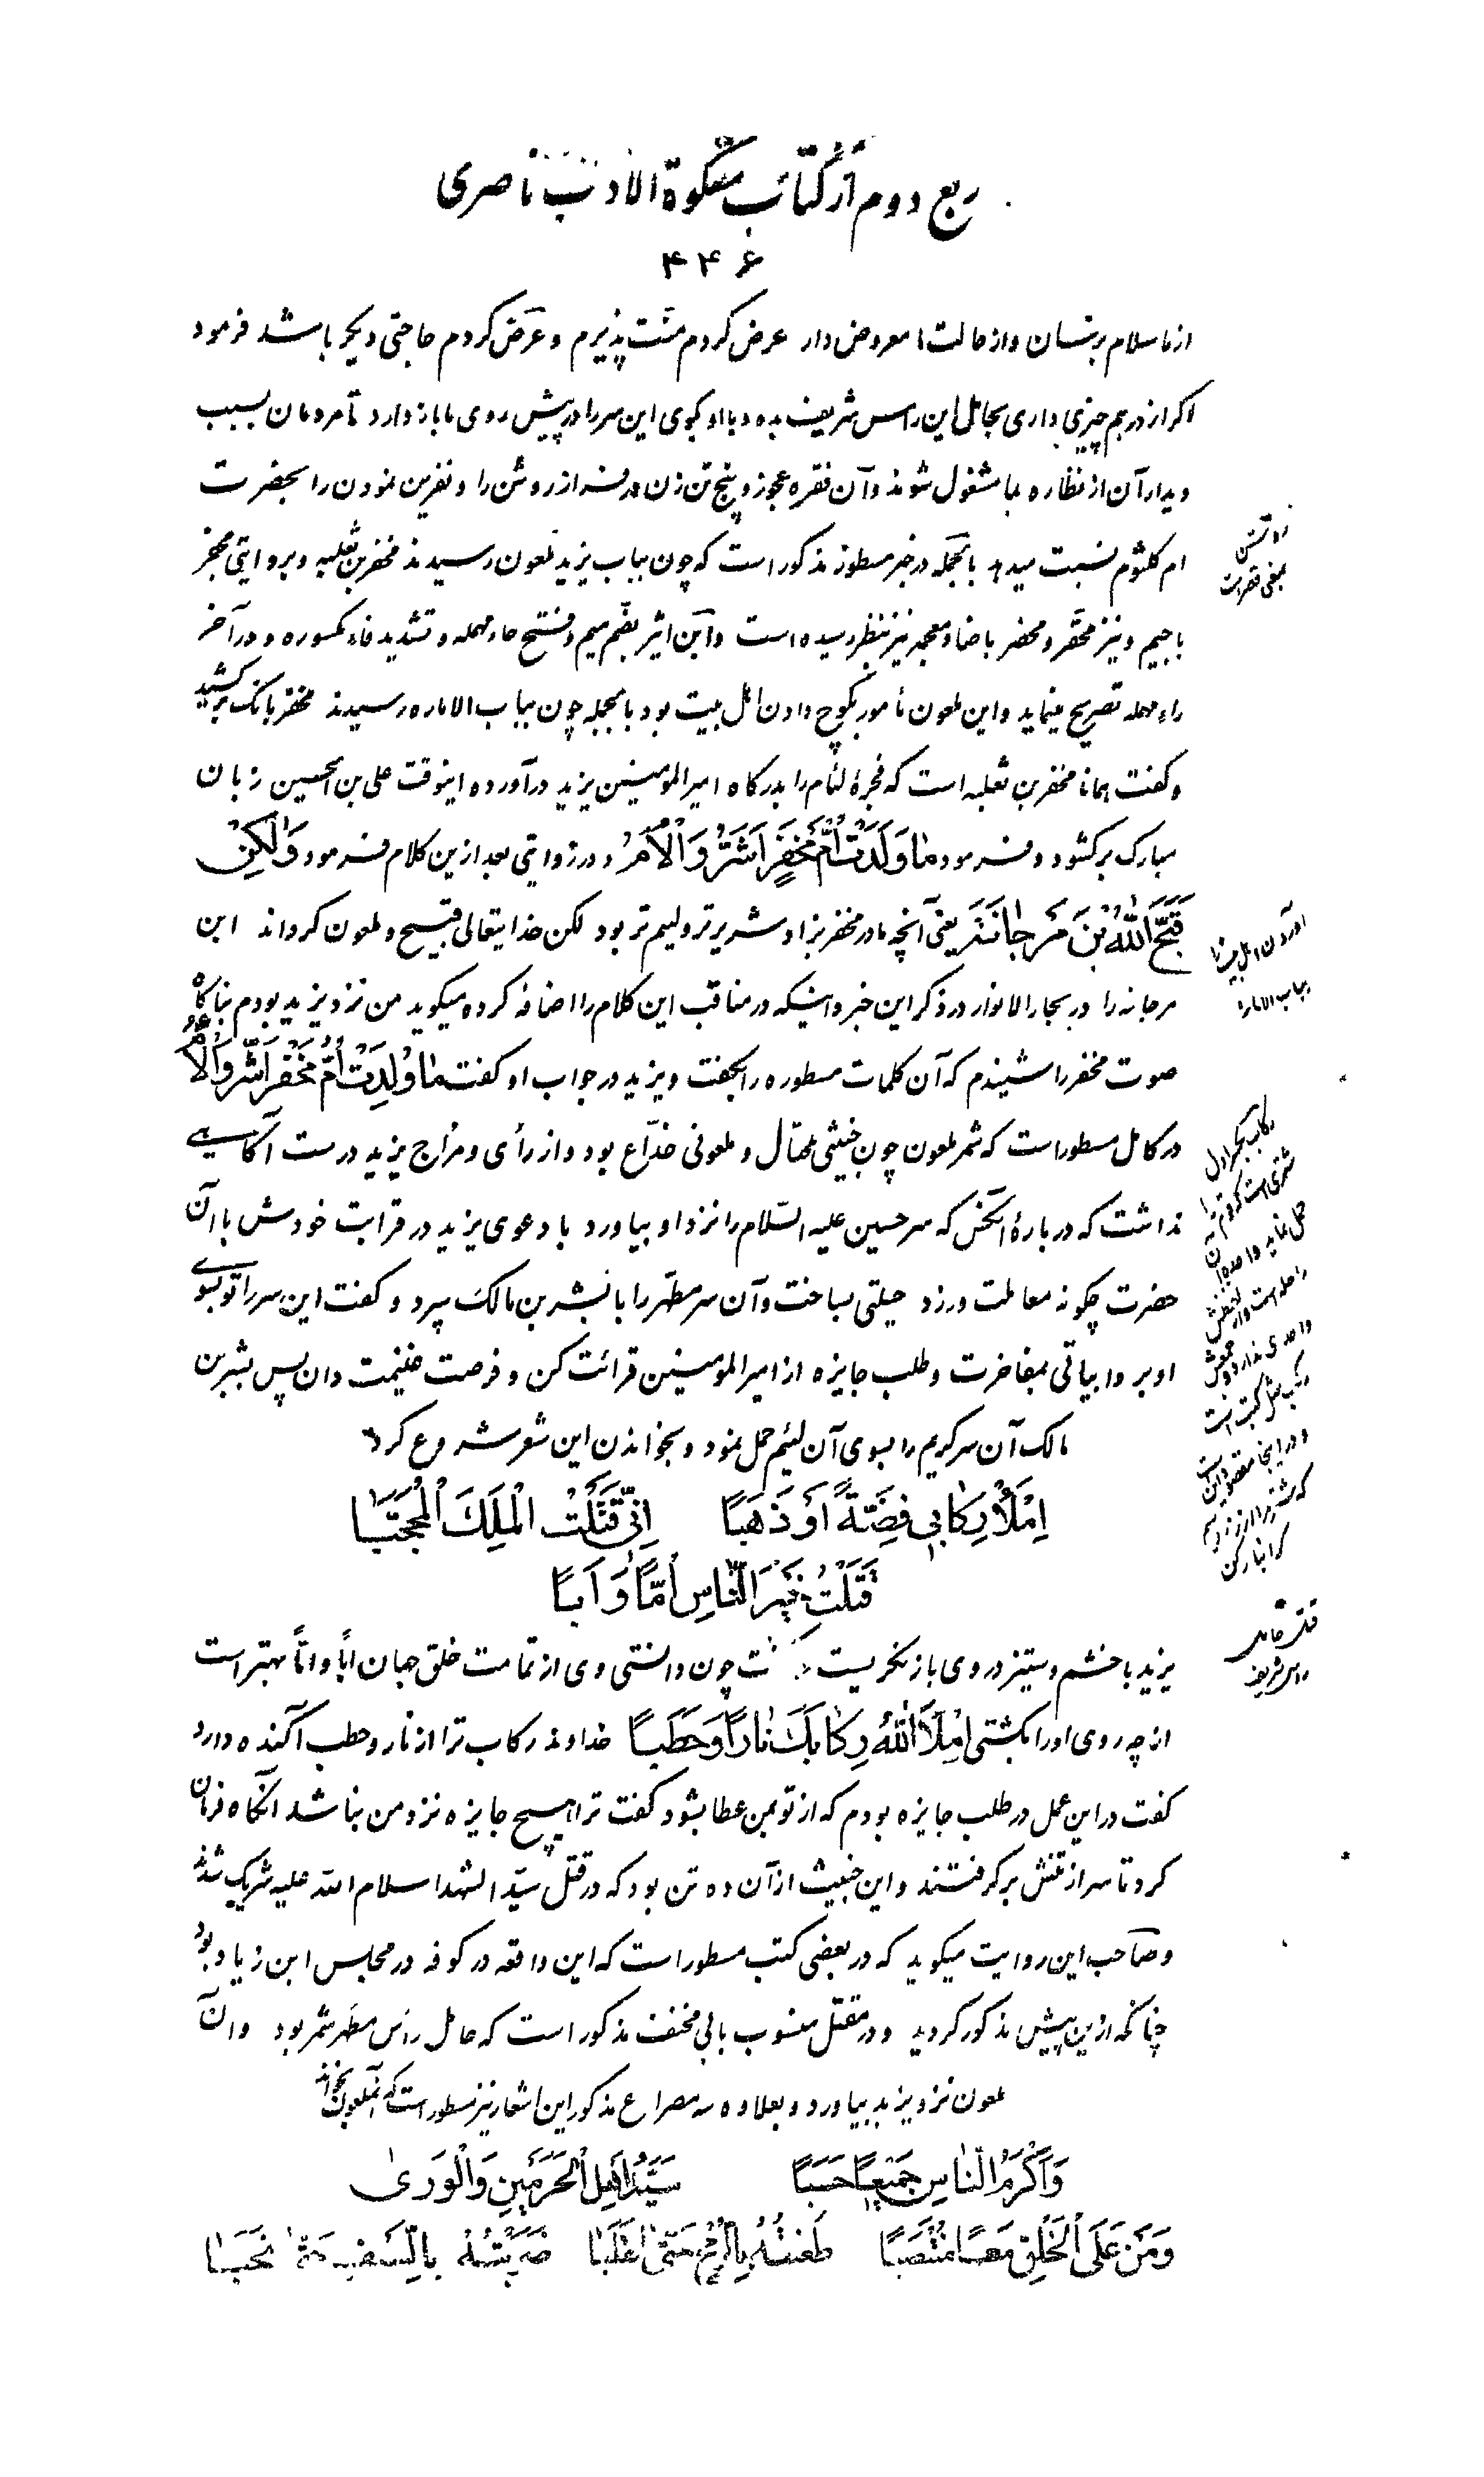 ربع دوم از کتاب مشکوة الادب ناصری
۴۴۶
از ما سلام برسان و از حالت ما معروض دار عرض کردم منت پذیرم و عرض کردم حاجتی دیگر باشد فرمود
اکر از درهم چیزی داری بحامل این راس شریف بده و با او بکوی این سر را در پیش روی ما باز دارد تا مردمان بسبب
دیدار آن از نظاره بما مشغول شوند و آن فقره عجوز و پنج تن زن در فراز روشن را و نفرین نمودن را بحضرت
ام کلثوم نسبت میدهد بالجمله در خبر مسطور مذکور است که چون بباب یزید ملعون رسیدند مخفر بن ثعلبه و بروایتی مجفر
باجیم و نیز محقر و محضر با ضاد معجمه نیز بنظر رسیده است و ابن اثیر بضم میم و فتح حاء مهمله و تشدید فاء مکسوره و در آخر
راء مهمله تصریح مینماید و این ملعون مأمور بکوچ دادن اهل بیت بود بالجمله چون بباب الاماره رسیدند مخفر بانک برکشید
و کفت همانا مخفر بن ثعلبه است که فجرهٔ لئام را بدرکاه امیر المؤمنین یزید درآورده اینوقت علی بن الحسین زبان
مبارک برکشود و فرمود مٰا وَلَدَتْ اُمُّ مُخَفِّرٍ اَشَرُّ وَاَلْأَمُ و در روایتی بعد ازین کلام فرمود وَلٰکِنْ
قَبَّحَ اللهُ بْنَ مَرْجٰانَةَ یعنی آنچه مادر مخفر بزاد شریرتر و لیم تر بود لکن خدایتعالی قبیح و ملعون کرداند ابن
مرجانه را در بحار الانوار در ذکر این خبر و اینکه در مناقب این کلام را اضافه کرده میکوید من نزد یزید بودم بناکاه
صوت مخفر را شنیدم که آن کلمات مسطوره را بکفت و یزید در جواب او کفت مٰا وَلَدَتْ اُمُّ مُخَفِّرٍ اَشَرُّ وَاَلْأَمُ
در کامل مسطور است که شمر ملعون چون خبیثی محتال و ملعونی خدّاع بود و از رأی و مزاج یزید درست آکاهی
نداشت که دربارهٔ آنکس که سر حسین علیه السّلام را نزد او بیاورد با دعوی یزید در قرابت خودش با آن
حضرت چکونه معاملت ورزد حیلتی بساخت و آن سر مطهّر را با بشر بن مالک سپرد و کفت این سر را تو بسوی
او بر و ابیاتی بمفاخرت و طلب جایزه از امیر المؤمنین قرائت کن و فرصت غنیمت دان پس بشر بن
مالک آن سر کریم را بسوی آن لئیم حمل نمود و بخواندن این شعر شروع کرد
اِمْلَأْ رِکٰابی فِضَّةً اَوْ ذَهَبًا اِنّی قَتَلْتُ الْمَلِکَ الْمُحَجَّبٰا
قَتَلْتُ خَیْرَ النّٰاسِ اُمًّا وَ اَبًا
یزید با خشم و ستیز در وی باز نکریست کفت چون دانستی وی از تمامت خلق جهان اباً و اماً بهتر است
از چه روی او را بکشتی اِمْلَأَ اللهُ رِکٰابَکَ نٰارًا وَ حَطَبًا خداوند رکاب ترا از نار و حطب آکنده دارد
کفت در این عمل در طلب جایزه بودم که از تو بمن عطا بشود کفت ترا هیچ جایزه نزد من نباشد آنکاه فرمان
کرد تا سر از تنش برکرفتند و این خبیث از آن ده تن بود که در قتل سیّد الشهدا سلام الله علیه شریک شدند
و صاحب این روایت میکوید که در بعضی کتب مسطور است که این واقعه در کوفه در مجلس ابن زیاد بود
چنانکه ازین پیش مذکور کردید و در مقتل منسوب بابی مخنف مذکور است که حامل رأس مطهر شمر بود و آن
ملعون نزد یزید بیاورد و بعلاوه سه مصراع مذکور این اشعار نیز مسطور است که آنملعون بخواند
وَ اَکْرَمَ النّٰاسِ جَمیعًا حَسَبًا سَیِّدَ اَهْلِ الْحَرَمَیْنِ وَالْوَریٰ
وَ مَنْ عَلَی الْخَلْقِ مَعًا مُنْتَصَبًا طَعَنْتُهُ بِالرُّمْحِ حَتّٰی انْقَلَبٰا ضَرَبْتُهُ بِالسَّیْفِ
بمعنی فقرات
آوردن اهل بیت را
بباب الاماره
رکاب بکسر اول
شتری است که قوم را
حمل نماید
راحله است
و در اینجا مقصود این است
که شتر مرا از زر و سیم
کرانبار کن
قتل حامل
راس شریف